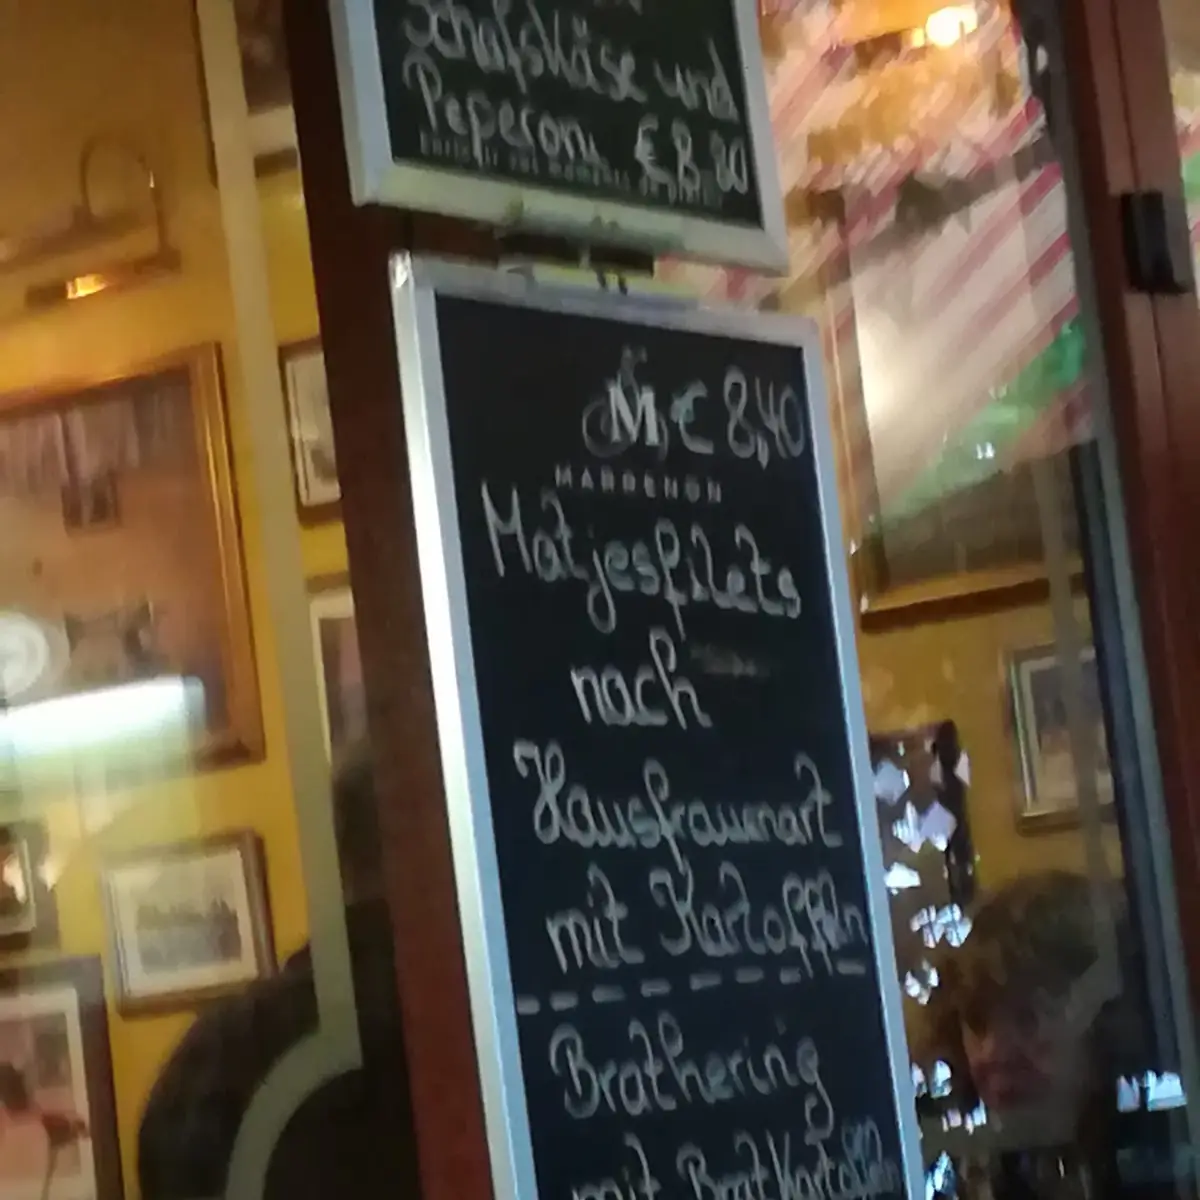 Schafskäse und
Peperoni €8.80
M € 8,40
MARRENON
Matjesfilets
nach
Hausfrauenart
mit Kartoffeln
Brathering
mit Bratkartoffeln